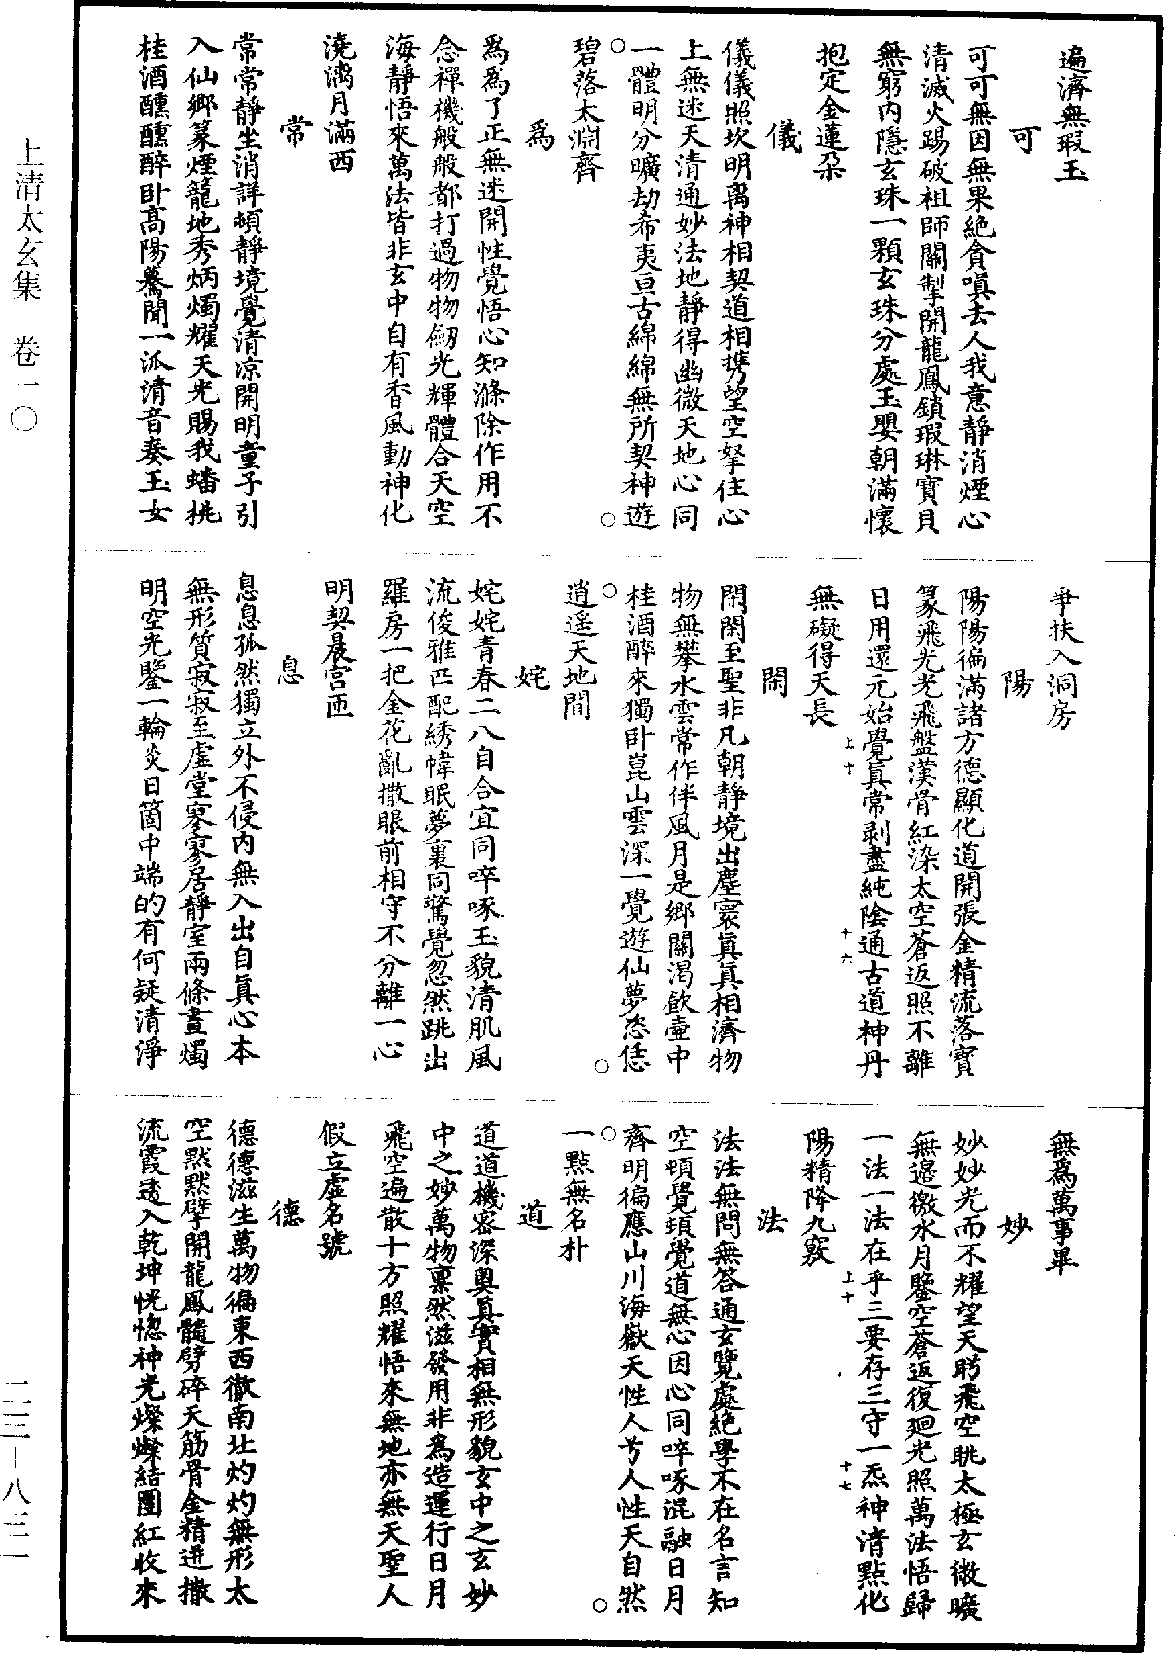 遍濟無瑕玉
可
可可無因無果絶貪嗔去人我意靜消煙心
清滅火踢破祖師關掣開龍鳳鎖瑕琳寶貝
無窮內隱玄珠一顆玄珠分處玉嬰朝滿懷
抱定金蓮朶
儀
儀儀照坎明离神相契道相携望空拏住心
上無迷天清通妙法地靜得幽微天地心同
一體明分曠劫希夷亘古綿綿無所契神遊
碧落太淵齊
爲
爲爲了正無迷開性覺悟心知滌除作用不
念禪機般般都打過物物劒光輝體合天空
海靜悟來萬法皆非玄中自有香風動神化
澆潙月滿西
常
常常靜坐消詳頓靜境覺清涼開明童子引
入仙鄉篆煙籠地秀炳燭耀天光賜我蟠桃
桂酒醺醺醉卧高陽驀聞一派清音奏玉女
爭扶入洞房
陽
陽陽徧滿諸方德顯化道開張金精流落寳
篆飛光光飛盤漢骨紅染太空蒼返照不離
日用還元始覺眞常剥盡純陰通古道神丹
無礙得天長
上十
十六
閑
閑閑至聖非凡朝靜境出塵寰眞眞相濟物
物無攀水雲常作伴風月是鄉關渴飲壷中
桂酒醉來獨卧崑山雲深一覺遊仙夢恣恁
逍遥天地間
姹
姹姹青春二八自合宜同啐啄玉貌清肌風
流俊雅匹配綉幃眠夢裏同驚覺忽然跳出
羅房一把金花亂撒眼前相守不分離一心
明契晨宫匝
息
息息孤然獨立外不侵內無入出自眞心本
無形質寂寂至虛堂寥寥居靜室兩條晝燭
明空光鑒一輪炎日箇中端的有何疑清淨
無爲萬事畢
妙
妙妙光而不耀望天眄飛空眺太極玄微曠
無邊徼水月鑒空蒼返復廻光照萬法悟歸
一法一法在乎三要存三守一炁神清點化
陽精降九竅
上十
十七
法
法法無問無答通玄覽處絶學不在名言知
空頓覺頊覺道無心因心同啐啄混融日月
齊明徧應山川海嶽天性人兮人性天自然
一點無名朴
道
道道機密深奥眞實相無形貌玄中之玄妙
中之妙萬物禀然滋發用非爲造運行日月
飛空遍散十方照耀悟來無地亦無天聖人
假立虛名號
德
德德滋生萬物徧東西徹南北灼灼無形太
空默默擘開龍鳳髓劈碎天筋骨金精迸撒
流霞透入乾坤恍惚神光燦燦結團紅收來
上清太玄集　卷一〇
二三—八三一